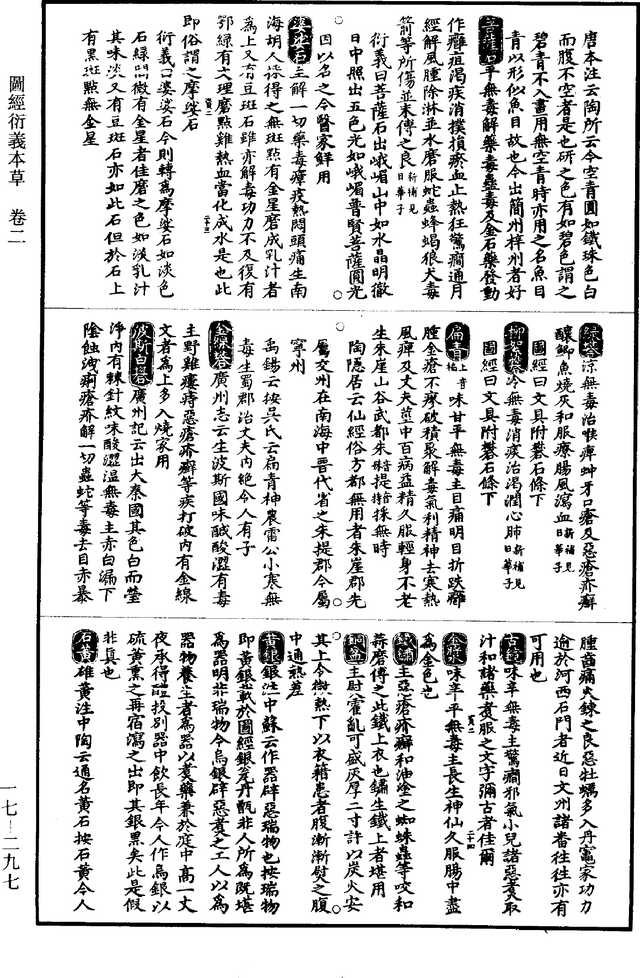 唐本注云陶所云今空青圓如鐵珠色白
而腹不空者是也研之色有如碧色謂之
碧青不入畫用無空青時亦用之名魚目
青以形似魚目故也今出簡州梓州者好
菩薩石平無毒解藥毒蠱毒及金石藥發動
作癰疽渴疾消撲損瘀血止熱狂驚癇通月
經解風腫除淋並水磨服蛇蟲蜂蝎狼犬毒
箭等所傷並末傅之良新補見日華子
衍義曰菩薩石出峨嵋山中如水晶明徹
日中照出五色光如峨嵋普賢菩薩圓光
因以名之今醫家鮮用
婆娑石主解一切藥毒瘴疫熱悶頭痛生南
海胡人採得之無斑點有金星磨成乳汁者
為上又有豆斑石雖亦解毒功力不及復有
鄂綠有文理磨點雖熱血當化成水是也此
即俗謂之摩娑石
衍義曰婆娑石今則轉為摩娑石如淡色
石綠間微有金星者佳磨之色如淡乳汁
其味淡又有豆斑石亦如此石但於石上
有黑斑點無金星
綠礬涼無毒治喉痺蚛牙口瘡及惡瘡疥癬
釀鯽魚燒灰和服療腸風瀉血新補見日華子
圖經曰文具附礬石條下
柳絮礬冷無毒消痰治渴潤心肺新補見日華子
圖經曰文具附礬石條下
扁青上音褊味甘平無毒主目痛明目折跌癰
腫金瘡不瘳破積聚解毒氣利精神去寒熱
風痺及丈夫莖中百病益精久服輕身不老
生朱崖山谷武都朱提採無時
陶隱居云仙經俗方都無用者朱崖郡先
屬交州在南海中晋代省之朱提郡今屬
寧州
禹錫云按吳氏云扁青神農雷公小寒無
毒生蜀郡治丈夫內絕令人有子
金線礬廣州志云生波斯國味醎酸澀有毒
主野雞瘻痔惡瘡疥癬等疾打破內有金線
文者為上多入燒家用
波斯白礬廣州記云出大秦國其色白而瑩
淨內有棘針紋味酸澀溫無毒主赤白漏下
陰蝕洩痢瘡疥解一切蟲蛇等毒去目赤暴
腫齒痛火鍊之良惡牡蠣多入丹竈家功力
逾於河西石門者近日文州諸番往往亦有
可用也
古鏡味辛無毒主驚癇邪氣小兒諸惡煮取
汁和諸藥煮服之文字彌古者佳爾
金漿味辛平無毒主長生神仙久服腸中盡
為金色也
鐵鏽主惡瘡疥癬和油塗之蜘蛛蟲等咬和
蒜磨傅之此鐵上衣也鏽生鐵上者堪用
銅盆主尉霍亂可盛灰厚二寸許以炭火安
其上令微熱下以衣籍患者腹漸漸熨之腹
中通熱差
黃銀銀注中蘇云作器辟惡瑞物也按瑞物
即黃銀載於圖經銀瓮丹甑非人所為既堪
為器明非瑞物今烏銀辟惡煮之工人以為
器物養生者為器以煮藥兼於庭中高一丈
夜承得醴投別器中飲長年今人作烏銀以
硫黃熏之再宿瀉之出即其銀黑矣此是假
非真也
石黃雄黃注中陶云通名黃石按石黃今人
圖經衍義本草　卷二
一七—二九七